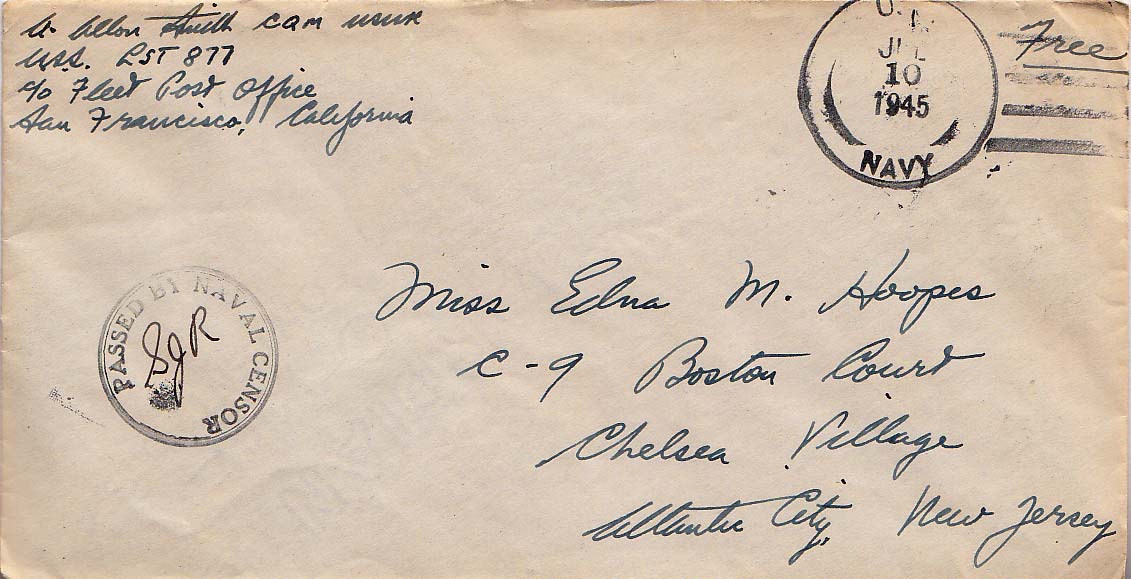 A. Allon Smith CQM USNR
U.S.S. LST 877
c/o Fleet Post Office
San Francisco, California
U.
JUL
10
1945
NAVY
Free
PASSED BY NAVAL CENSOR
SJR
Miss Edna M. Hoopes
C-9 Boston Court
Chelsea Village
Atlantic City, New Jersey